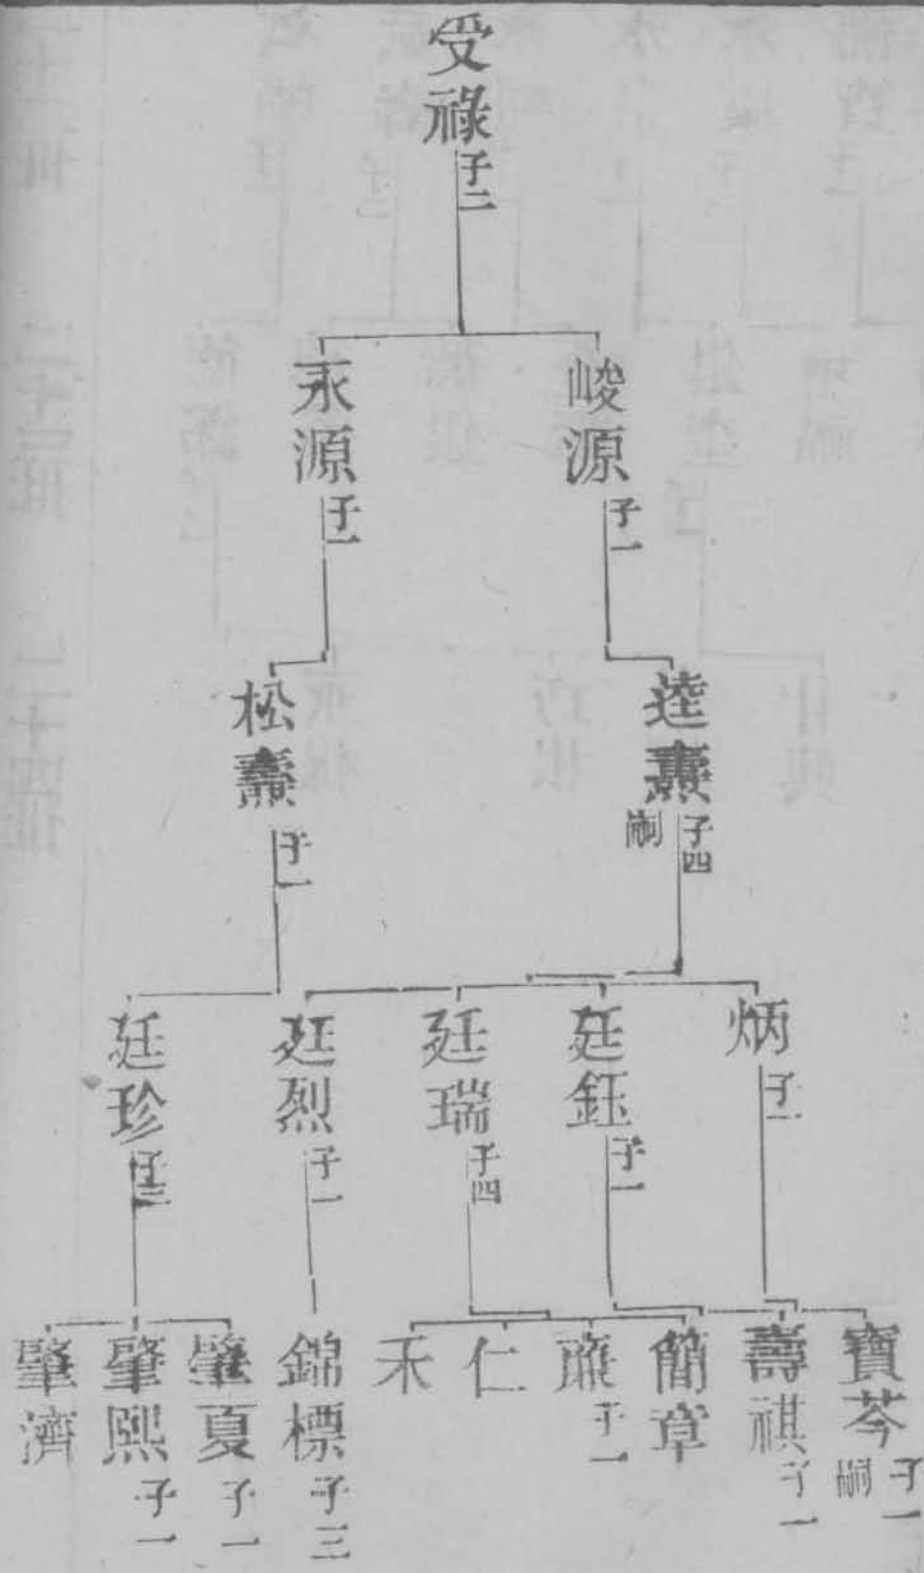 受祿 子二
峻源 子一
永源 子一
逵燾 子四 嗣
松燾 子一
炳 子二
廷鈺 子一
廷瑞 子四
廷烈 子一
廷珍 子三
寶芩 子一 嗣
壽祺 子一
簡章
子一
仁
禾
錦標 子三
肇夏 子一
肇熙 子一
肇濟